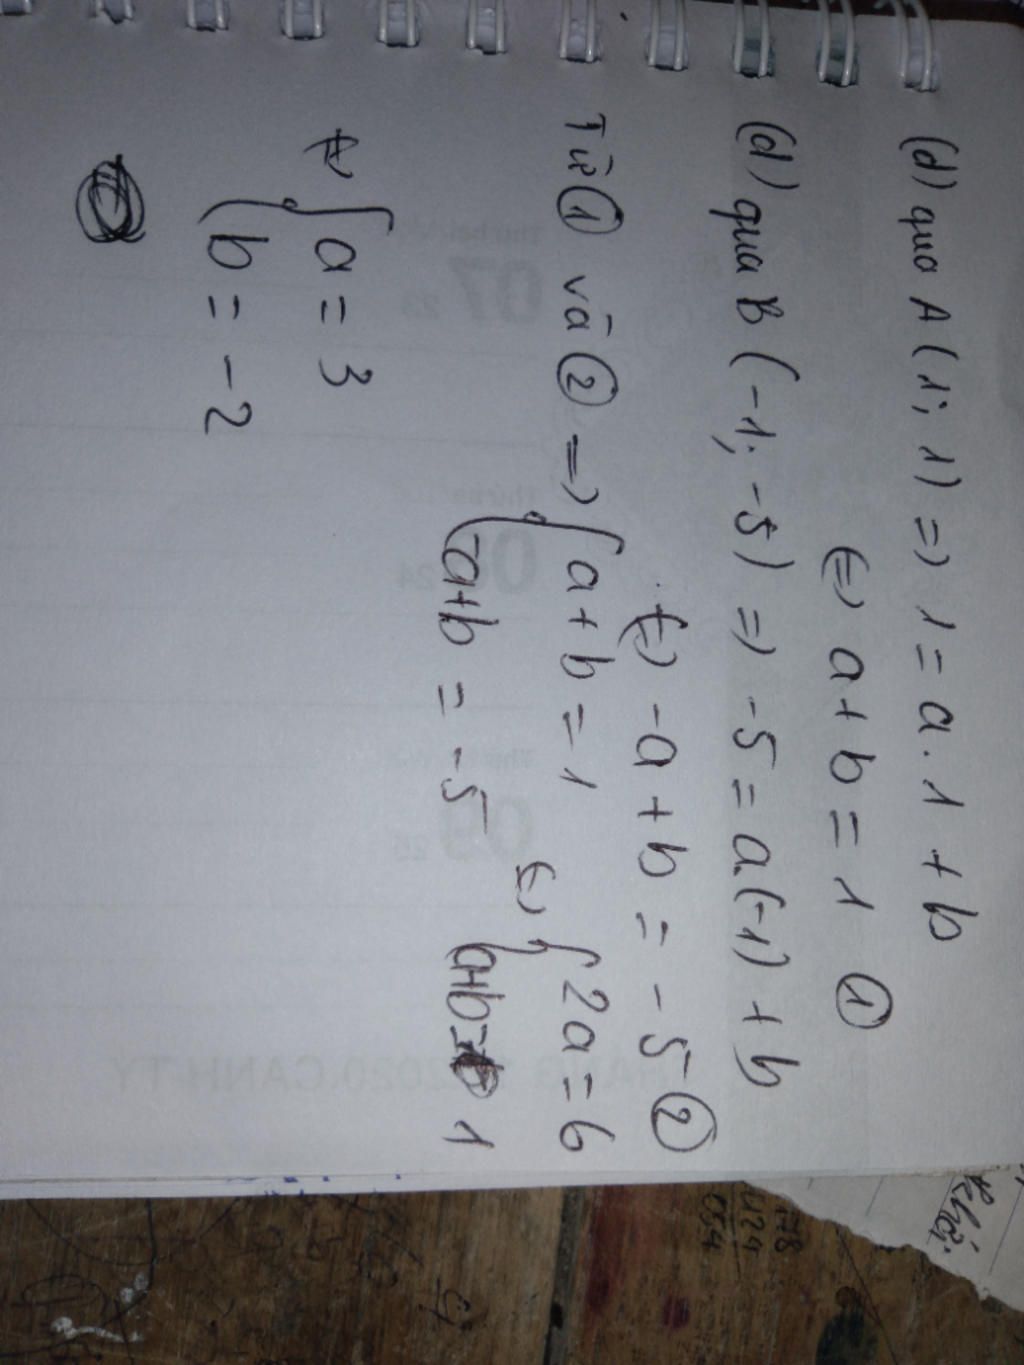 (d) qua A (1; 1) => 1 = a. 1 + b
<=> a + b = 1 ①
(d) qua B (-1; -5) => -5 = a.(-1) + b
<=> -a + b = -5 ②
Từ ① và ② => { a + b = 1 <=> { 2a = 6
-a+b = -5 a+b= 1
<=> { a = 3
b = -2
Khối